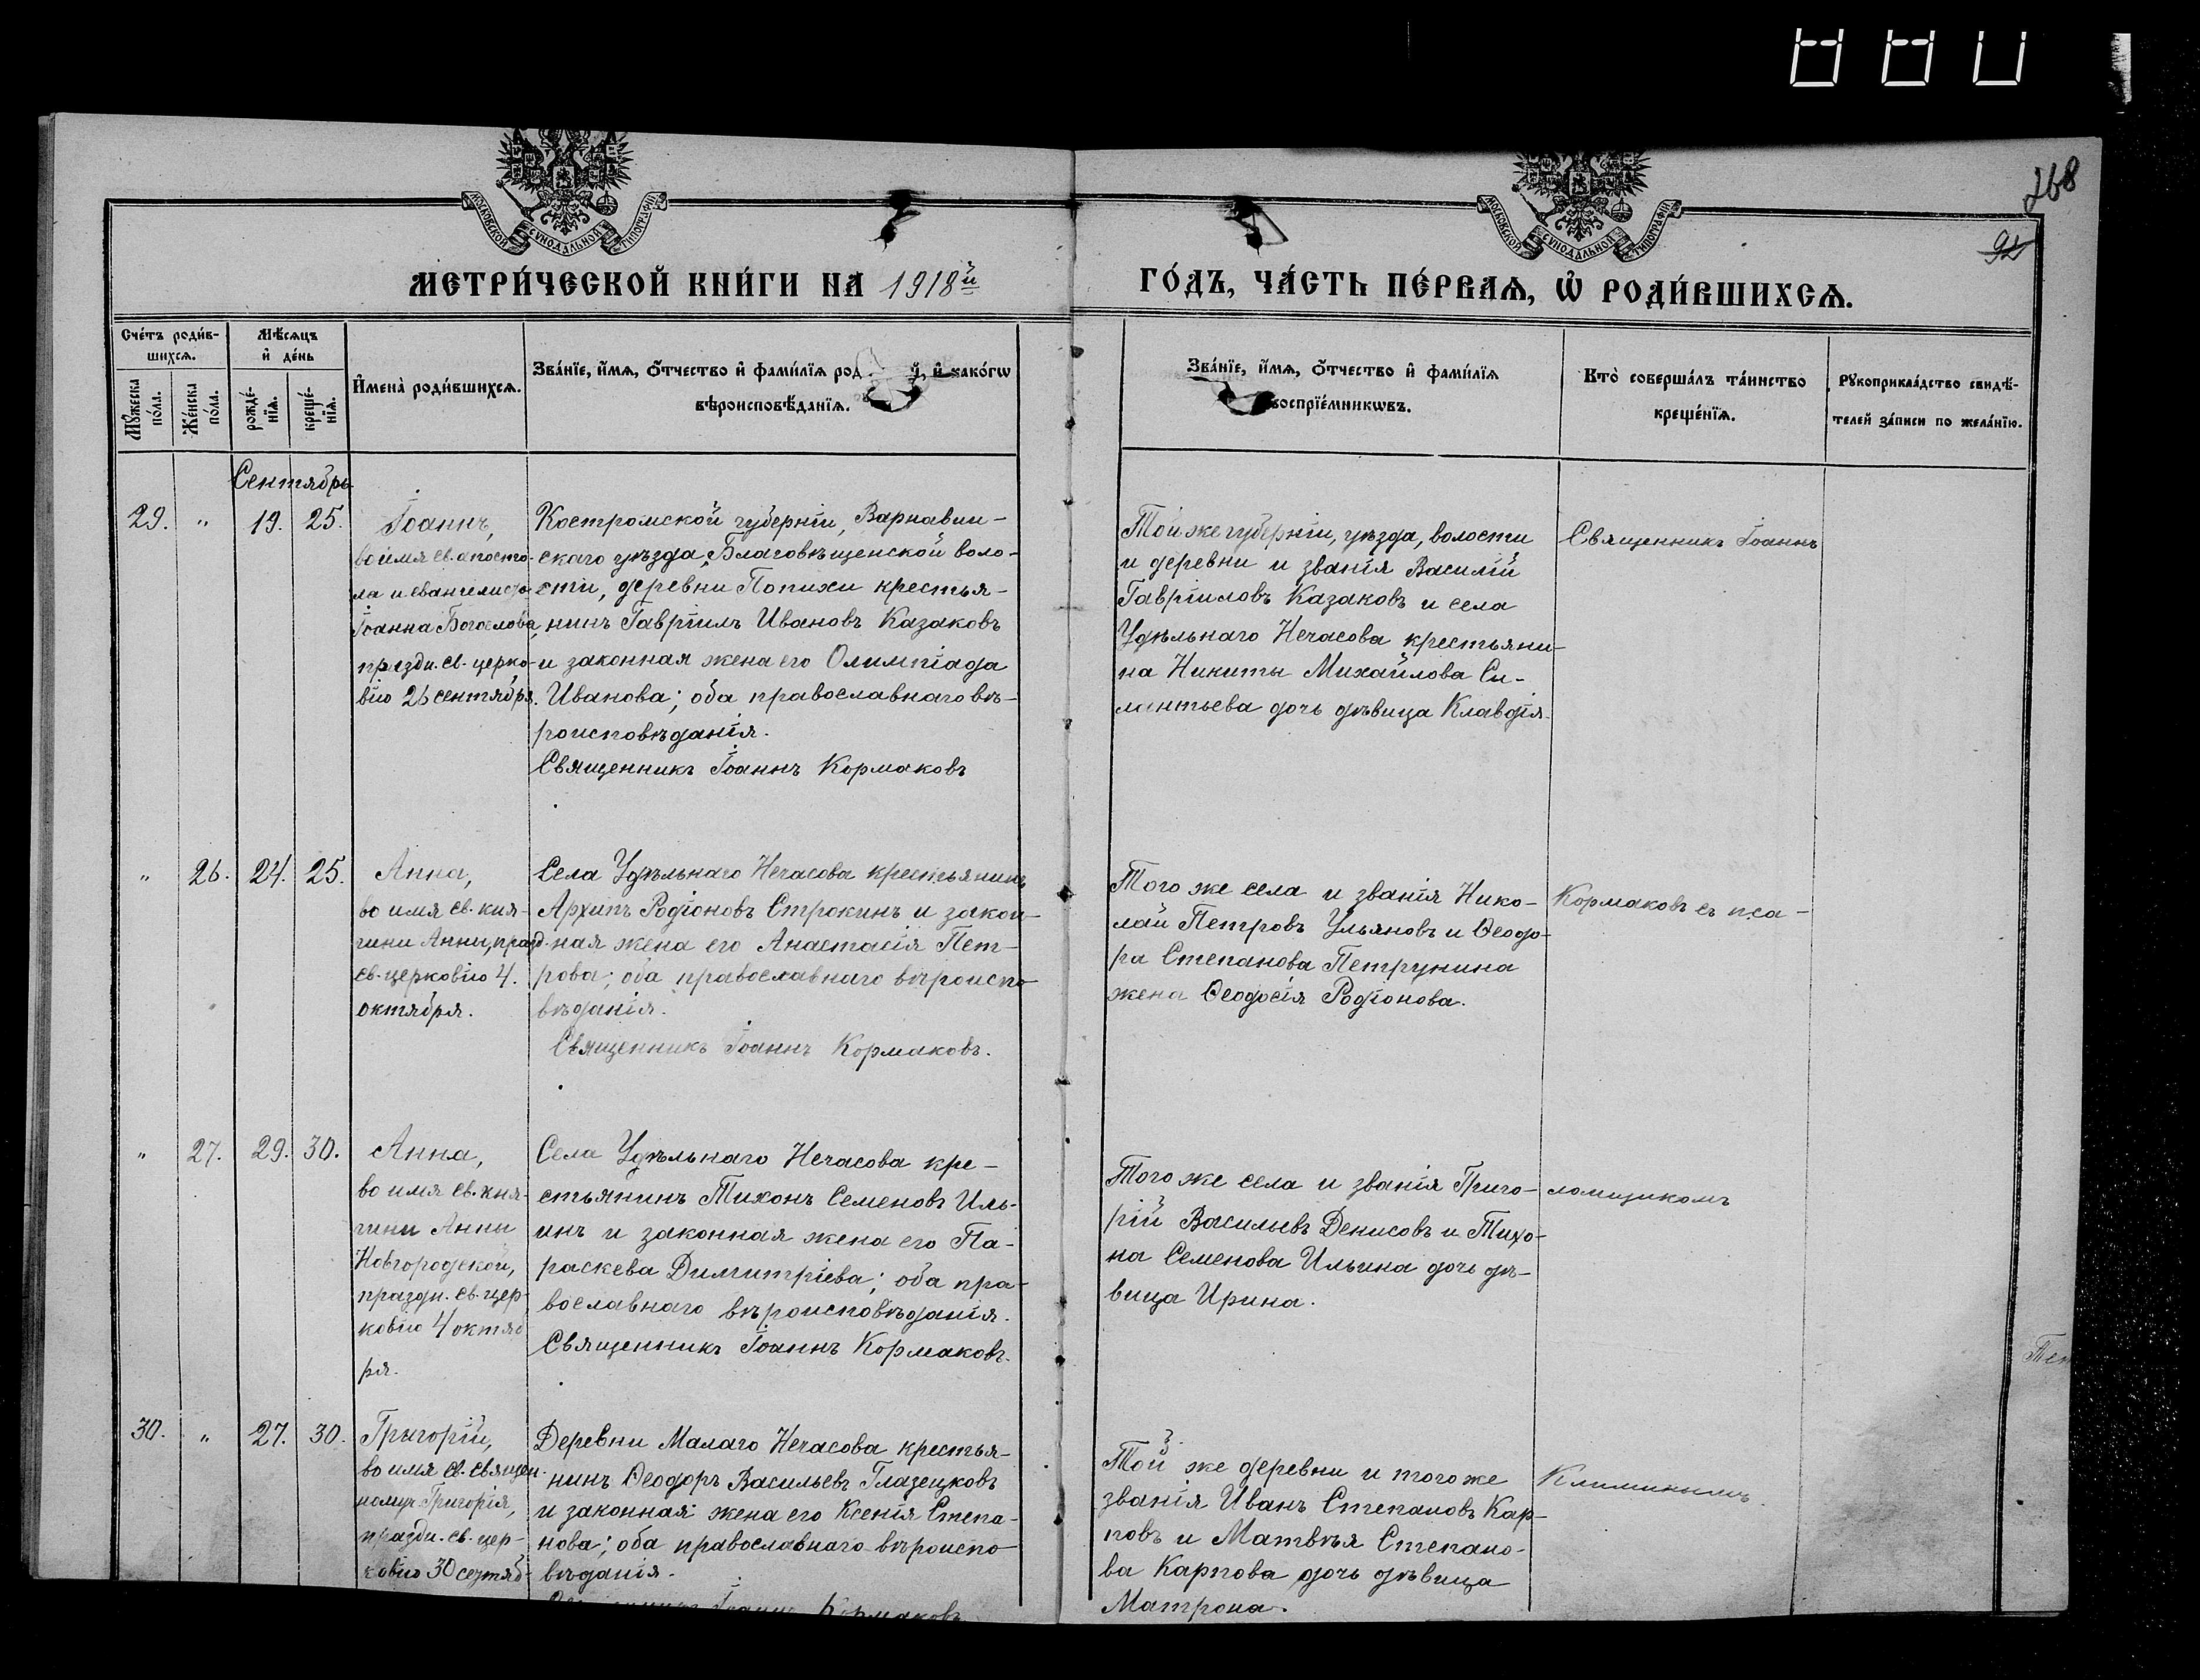 268
92
МОСКОВСКОЙ СУНОДАЛЬНОЙ ТИПОГРАФІИ
МОСКОВСКОЙ СУНОДАЛЬНОЙ ТИПОГРАФІИ
МЕТРИ́ЧЕСКОЙ КНИ́ГИ НА 1918й
ГО́ДЪ, ЧА́СТЬ ПЕ́РВАѦ, Ѡ҆ РОДИ́ВШИХСѦ.
Сче́тъ роди́в-
шихсѧ.
Мꙋ́жеска
по́ла.
Же́нска
по́ла.
Мѣ́сѧцъ
и҆ де́нь
рожде́-
нїѧ.
креще́-
нїѧ.
И҆мена̀ роди́вшихсѧ.
Зва́нїе, и҆́мѧ, ѻ҆́тчество и҆ фами́лїѧ род й, и҆ како́гѡ
вѣроисповѣ́данїѧ.
Зва́нїе, и҆́мѧ, ѻ҆́тчество и҆ фами́лїѧ
воспрїе́мникѡвъ.
Кто̀ соверша́лъ та́инство
креще́нїѧ.
Рꙋкоприкла́дство свидѣ́-
телей за́писи по жела́нїю.
Сентябрь
29. " 19. 25.
Іоаннъ,
во имя св. апосто-
ла и евангелиста
Іоанна Богослова,
праздн. св. церко-
вію 26 сентября.
Костромской губерніи, Варнавин-
скаго уѣзда, Благовѣщенской воло-
сти, деревни Попихи крестья-
нинъ Гавріилъ Ивановъ Казаковъ
и законная жена его Олимпіада
Иванова; оба православнаго вѣ-
роисповѣданія.
Священникъ Іоаннъ Кормаковъ
Той же губерніи, уѣзда, волости
и деревни и званія Василій
Гавріиловъ Казаковъ и села
Удѣльнаго Нечасова крестьяни-
на Никиты Михайлова Си-
лантьева дочь дѣвица Клавдія.
Священникъ Іоаннъ
" 26. 24. 25.
Анна,
во имя св. кня-
гини Анны, празд.
св. церковію 4.
октября.
Села Удѣльнаго Нечасова крестьянинъ
Архипъ Родіоновъ Строкинъ и закон-
ная жена его Анастасія Пет-
рова; оба православнаго вѣроиспо-
вѣданія.
Священникъ Іоаннъ Кормаковъ.
Того же села и званія Нико-
лай Петровъ Ульяновъ и Ѳеодо-
ра Степанова Петрунина
жена Ѳеодосія Родіонова.
Кормаковъ съ пса-
" 27. 29. 30.
Анна,
во имя св. кня-
гини Анны
Новгородской,
праздн. св. цер-
ковію 4 октяб
ря.
Села Удѣльнаго Нечасова кре-
стьянинъ Тихонъ Семеновъ Иль-
инъ и законная жена его Па-
раскева Димитріева; оба пра-
вославнаго вѣроисповѣданія.
Священникъ Іоаннъ Кормаковъ.
Того же села и званія Григо-
рій Васильевъ Денисовъ и Тихо-
на Семенова Ильина дочь дѣ-
вица Ирина.
ломщикомъ
30. " 27. 30.
Григорій,
во имя св. священ-
номуч. Григорія,
праздн. св. цер-
ковію 30 сентяб-
Деревни Малаго Нечасова крестья-
нинъ Ѳеодоръ Васильевъ Глазецковъ
и законная жена его Ксенія Степа-
нова; оба православнаго вѣроиспо-
вѣданія.
Священникъ Іоаннъ Кормаковъ
Той же деревни и того же
званія Иванъ Степановъ Кар-
повъ и Матвѣя Степано-
ва Карпова дочь дѣвица
Матрона.
Климинымъ